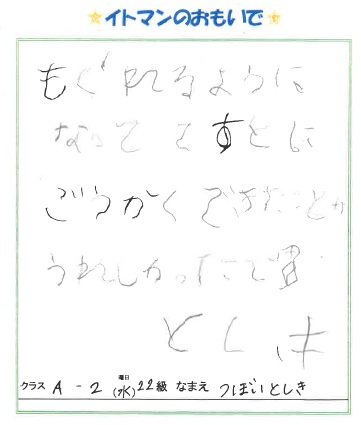 イトマンのおもいで
もぐれるように
なって てすとに
ごうかくできたことが
うれしかったです
としき
クラス A - 2 曜日(水) 22級 なまえ つぼいとしき